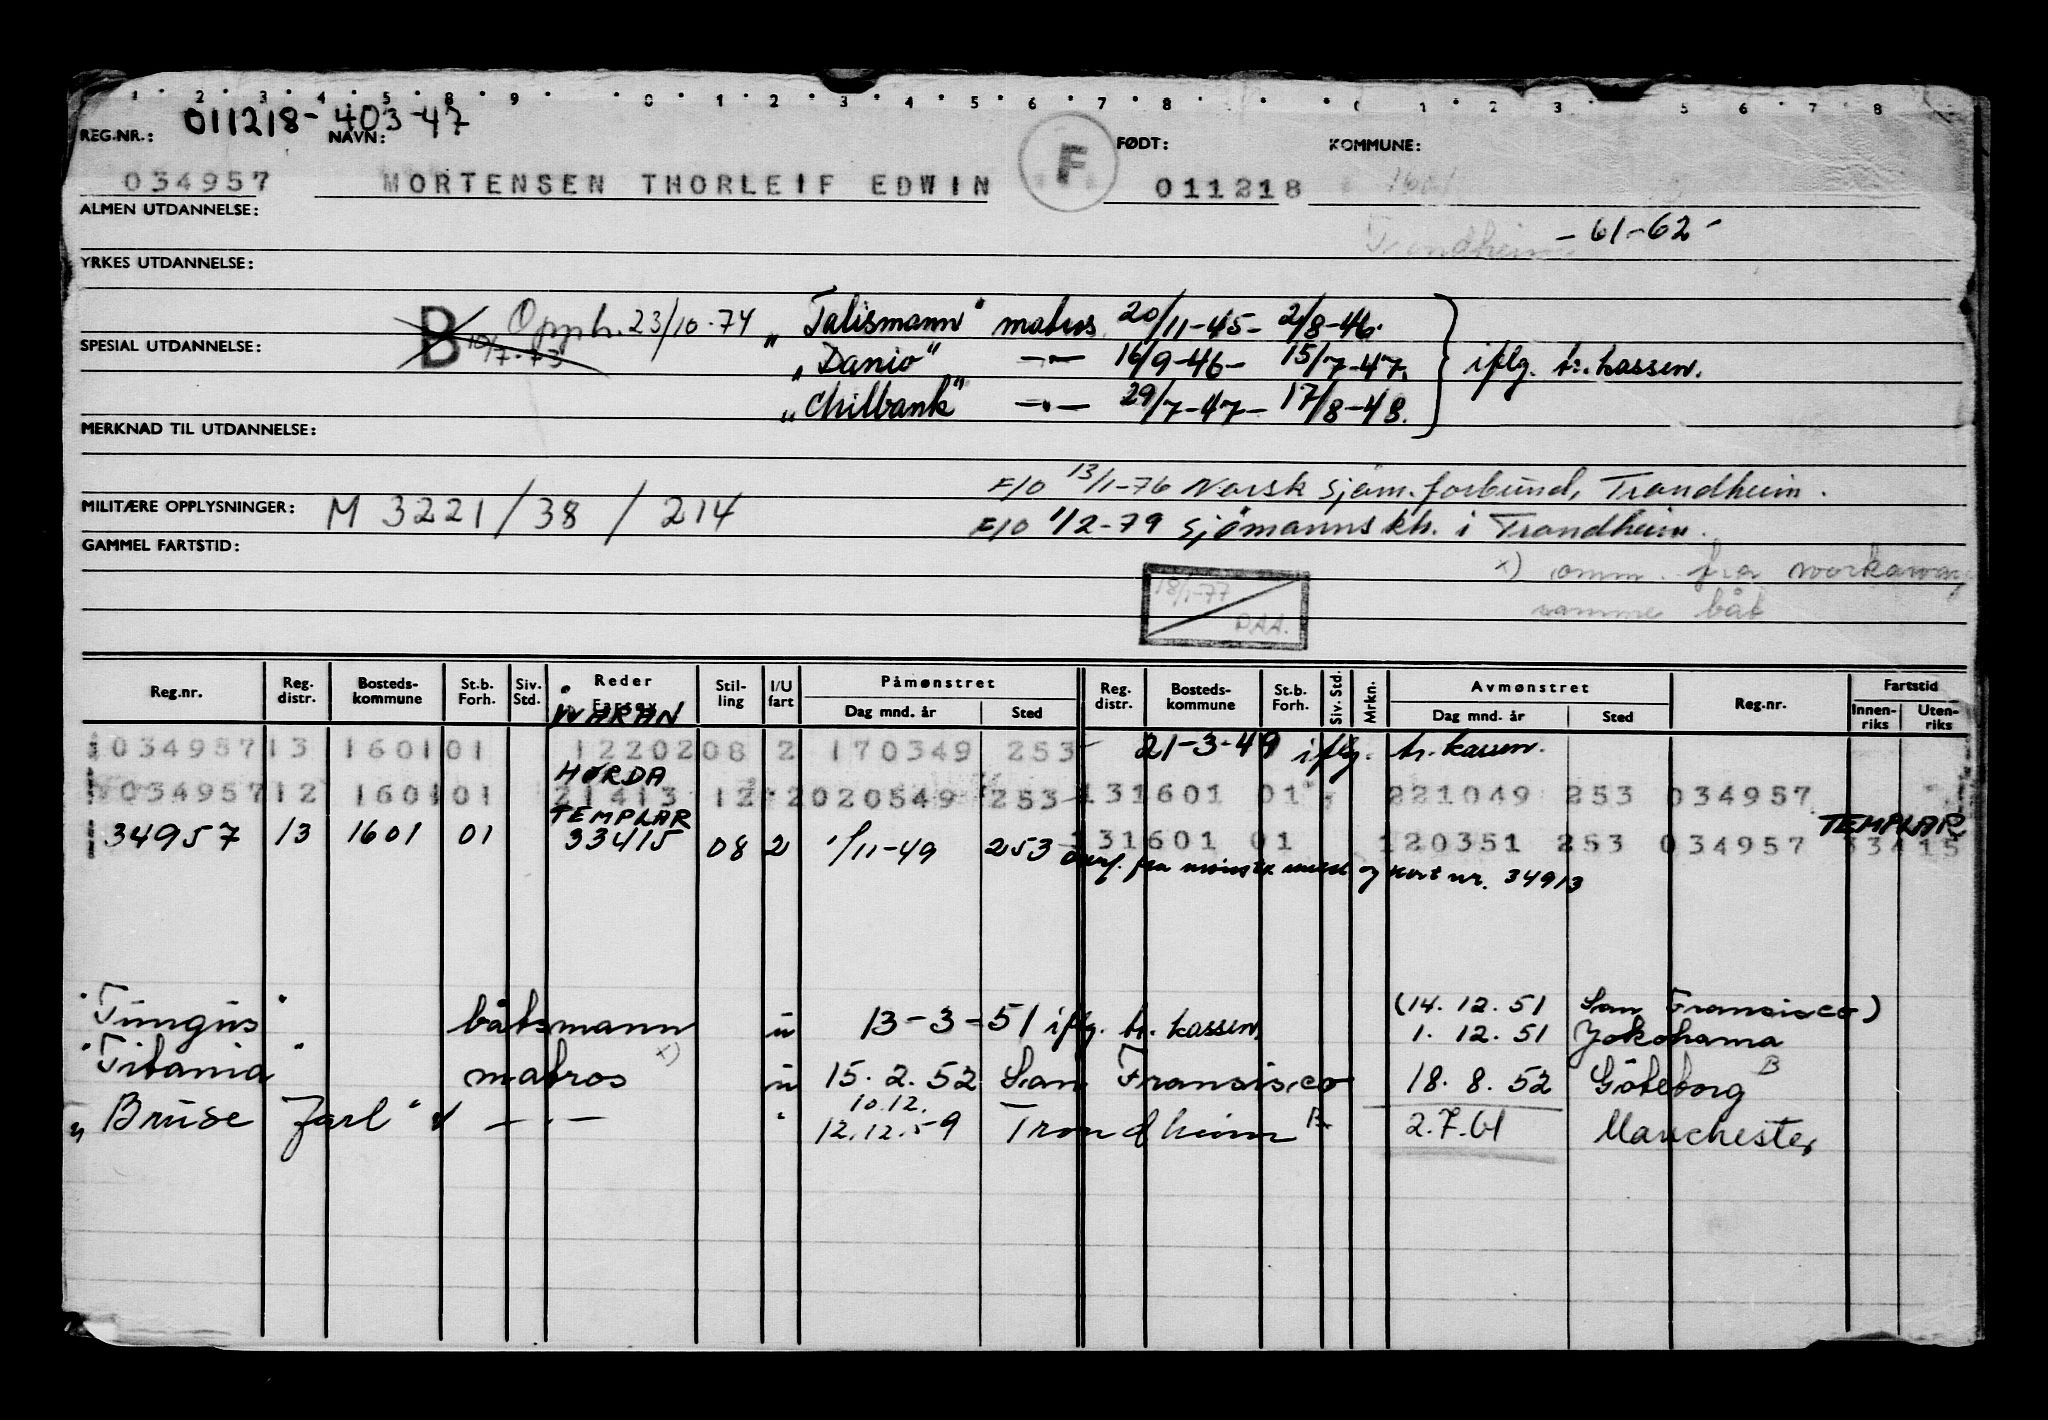 1 2 3 4 5 8 9 0 1 2 3 4 5 6 7 8 0 1 2 3 5 6 7 8
011218-403-47
REG.NR.: NAVN: FØDT: KOMMUNE:
034957 MORTENSEN THORLEIF EDWIN F 011218 1601
ALMEN UTDANNELSE:
Trondheim -61-62-
YRKES UTDANNELSE:
B 10/7-73 Opph. 23/10-74 "Talismann" matros 20/11-45- 2/8-46.
SPESIAL UTDANNELSE: "Danio" -"- 16/9-46- 15/7-47. iflg. tr.kassen.
"Chilbank" -"- 29/7-47- 17/8-48.
MERKNAD TIL UTDANNELSE:
F/O 13/1-76 Norsk Sjøm.forbund, Trondheim.
MILITÆRE OPPLYSNINGER: M 3221/38/214
F/O 1/2-79 Sjömannskh. i Trondheim.
GAMMEL FARTSTID:
x) omm. fra workaway
samme båt
18/1-77 DAA.
Reg.nr. Reg. distr. Bosteds-kommune St.b. Forh. Siv. Std. Reder Fartøy Stil-ling I/U fart Påmønstret Dag mnd. år Sted Reg. distr. Bosteds-kommune St.b. Forh. Siv. Std. Mrkn. Avmønstret Dag mnd. år Sted Reg.nr. Fartstid Innen-riks Uten-riks
WARAN
034957 13 1601 01 12202 08 2 170349 253 21-3-49 iflg. tr.kassen.
HØRDA
034957 12 1601 01 21413 12 2 020549 253 13 1601 01 221049 253 034957
TEMPLAR TEMPLAR
34957 13 1601 01 33415 08 2 1/11-49 253 13 1601 01 120351 253 034957 33415
overf. fra og kort nr. 34913
"Tungus" båtsmann u 13-3-51 iflg. tr. kassen (14.12.51 San Fransisco)
1.12.51 Yokohama
"Titania" matros x) u 15.2.52 San Fransisco 18.8.52 Göteborg B
"Bruse Jarl" -"- " 10.12.
12.12.59 Trondheim B 2.7.61 Manchester